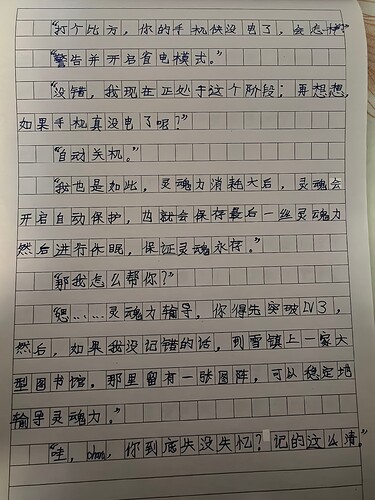 “打个比方，你的手机快没电了，会怎样？”
“警告并开启省电模式。”
“没错，我现在正处于这个阶段；再想想，
如果手机真没电了呢？”
“自动关机。”
“我也是如此，灵魂力消耗大后，灵魂会
开启自动保护，也就会保存最后一丝灵魂力
然后进行休眠，保证灵魂永存。”
“那我怎么帮你？”
“嗯……灵魂力输导，你得先突破LV3，
然后，如果我没记错的话，到雪镇上一家大
型图书馆。那里留有一张图阵，可以稳定地
输导灵魂力。”
“哇，你到底失没失忆？记的这么清。”